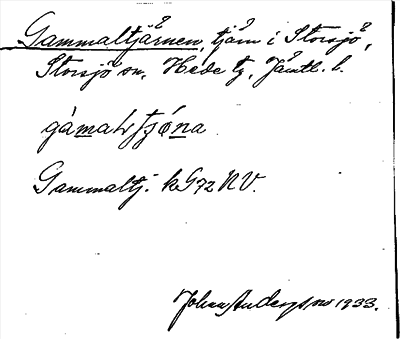 Gammaltjärnen, tjärn i Storsjö,
Storsjö sn, Hede tg, Jämtl. l.
gàmaltjó̱na
Gammaltj. k G72 NV.
Johan Andersson 1933.